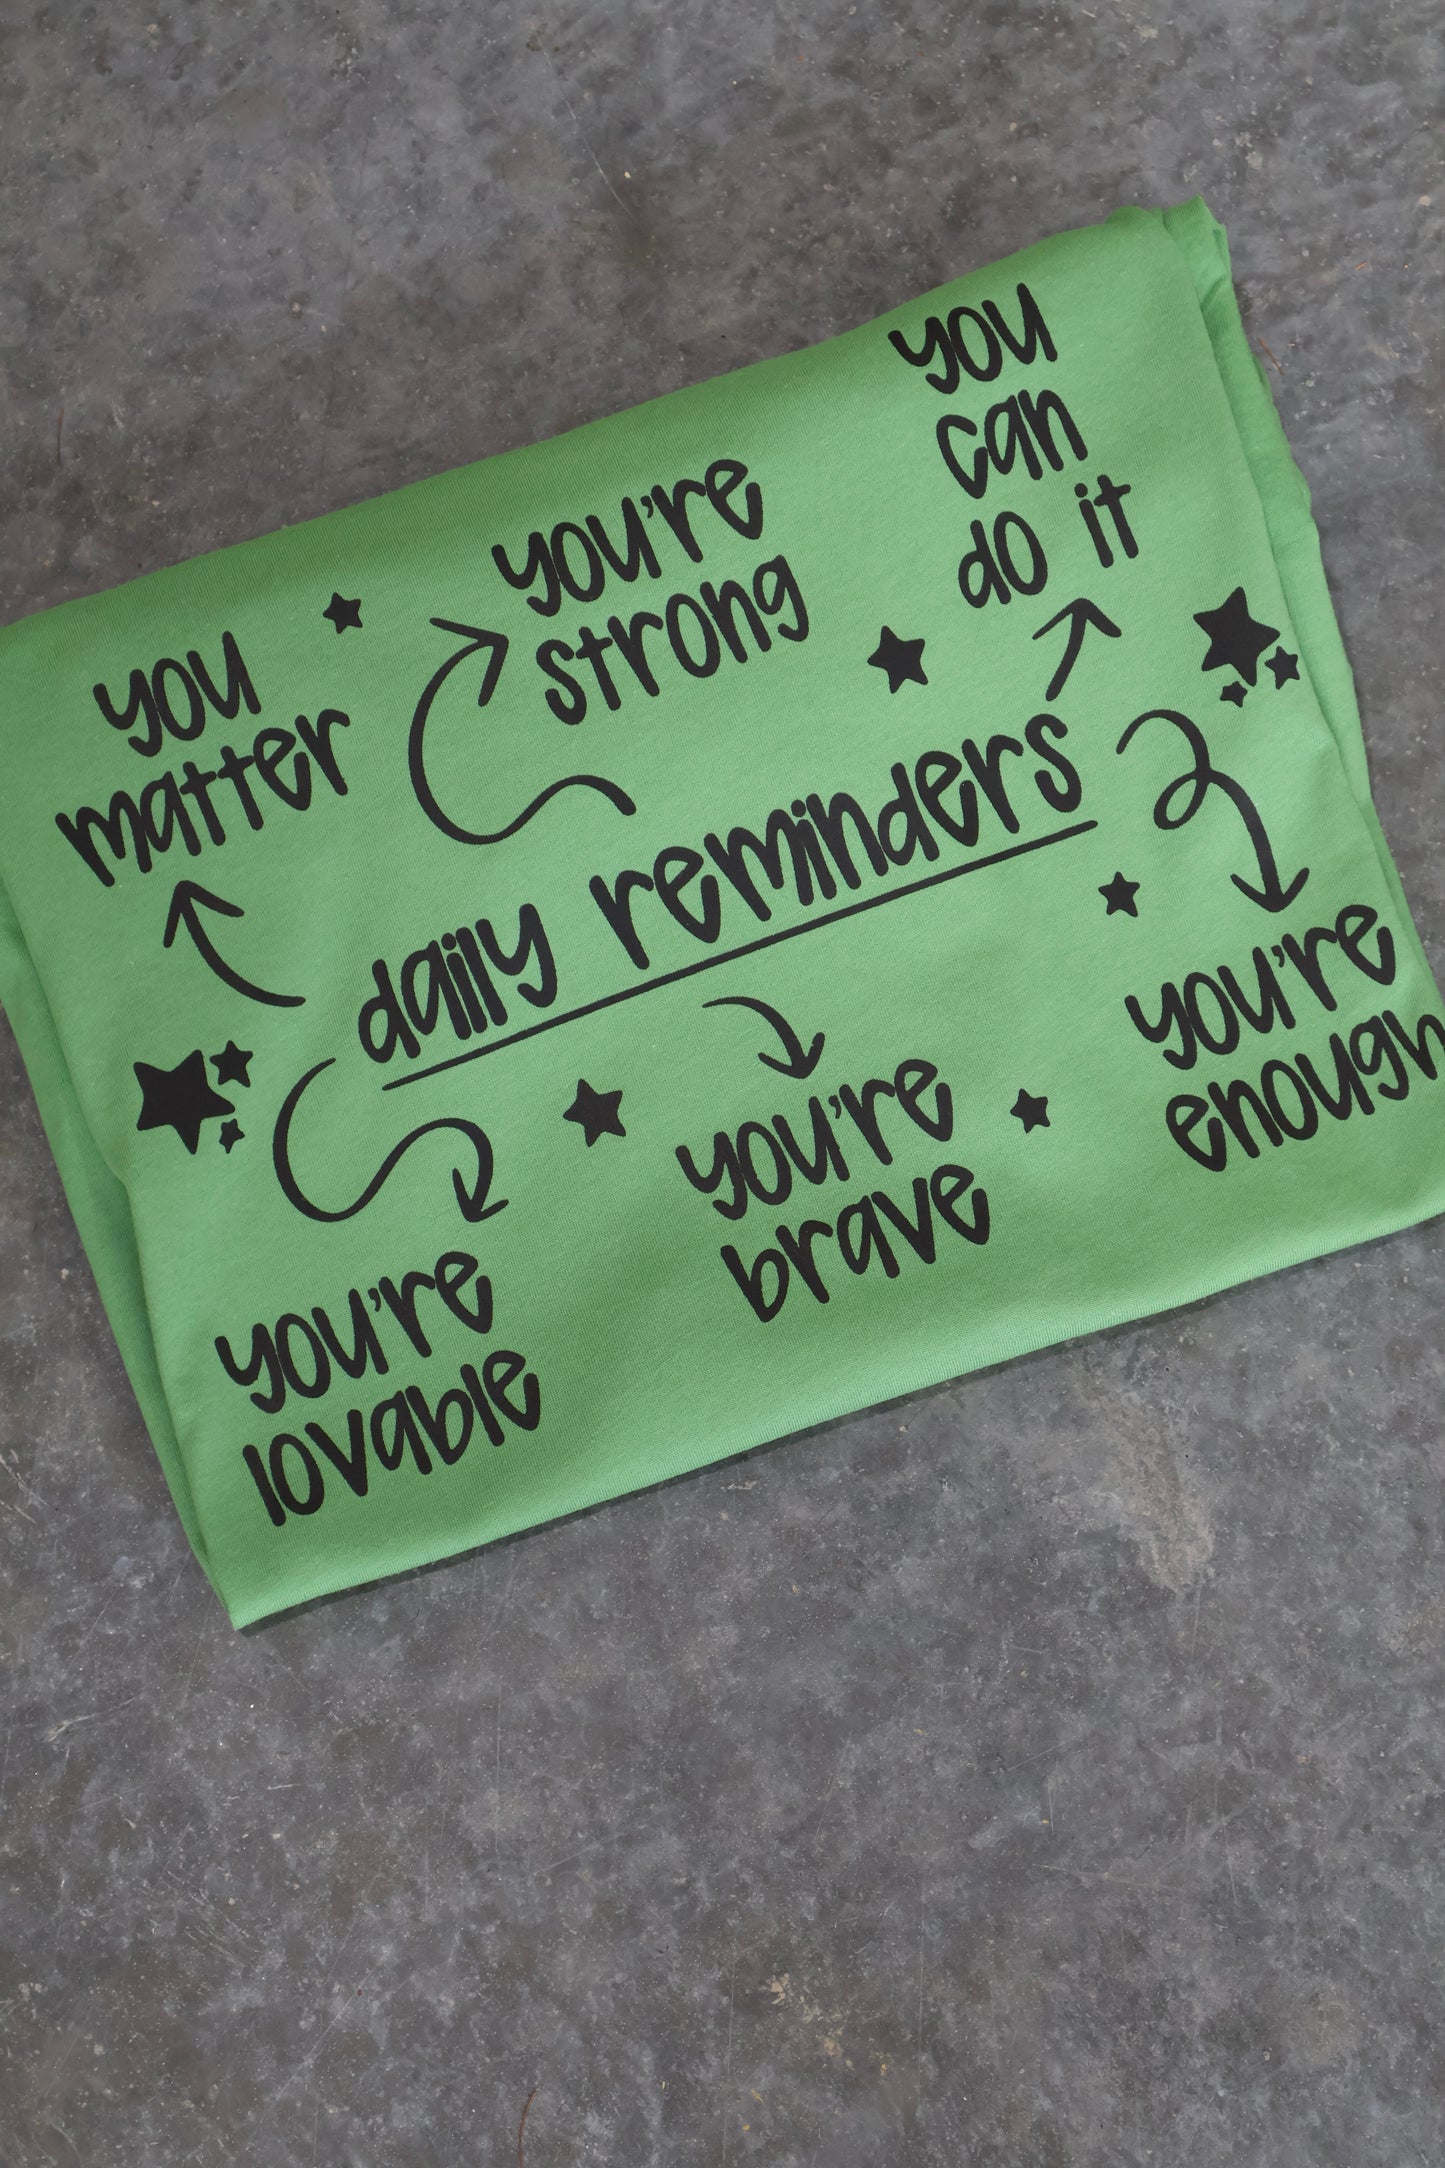 you
matter
you're
strong
you
can
do it
daily reminders
you're
lovable
you're
brave
you're
enough